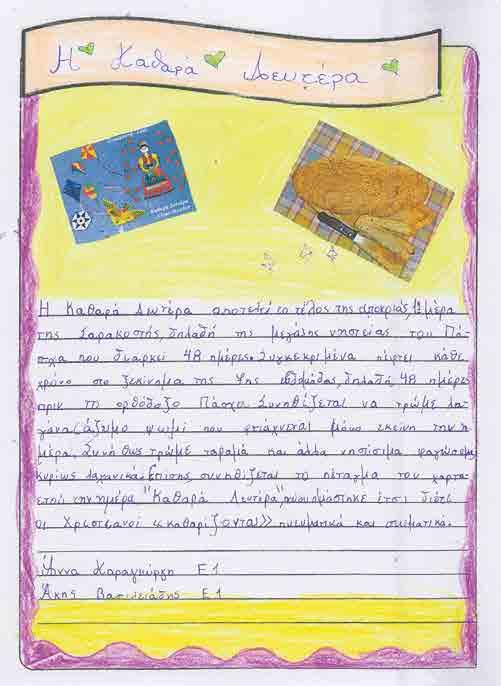 Η Καθαρά Δευτέρα
Η Καθαρά Δευτέρα αποτελεί το τέλος της αποκριάς, 1η μέρα
της Σαρακοστής, δηλαδή της μεγάλης νηστείας του Πά-
σχα που διαρκεί 48 ημέρες. Συγκεκριμένα πέφτει κάθε
χρόνο στο ξεκίνημα της 7ης εβδομάδας, δηλαδή, 48 ημέρες
πριν το ορθόδοξο Πάσχα. Συνηθίζεται να τρώμε λα-
γάνα (άζυμο ψωμί που φτιάχνεται μόνο εκείνη την η-
μέρα). Συνήθως τρώμε ταραμά και άλλα νηστίσιμα φαγώσιμα,
κυρίως λαχανικά. Επίσης, συνηθίζεται το πέταγμα του χαρτα-
ετού την ημέρα "Καθαρά Δευτέρα", που ονομάστηκε έτσι διότι
οι Χριστιανοί «καθαρίζονται» πνευματικά και σωματικά.
Άννα Καραγιώργη Ε1
Άκης Βασιλειάδης Ε1